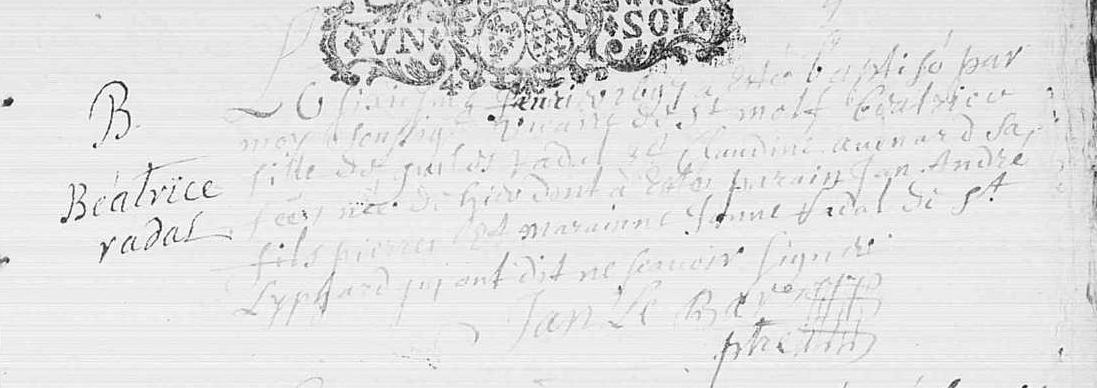 VN SOL
B
Béatrice
vadal
Le sixiesme janvier 1697 a esté baptisé par
moy soussigé vicaire de st molf béatrice
fille de vadal et Claudine auenard sa
née de hier dont a estes parain Jan André
fils pierre et marainne Janne vadal de st
Lyphard qui ont dit ne scauoir signer
Jan Le
ptre